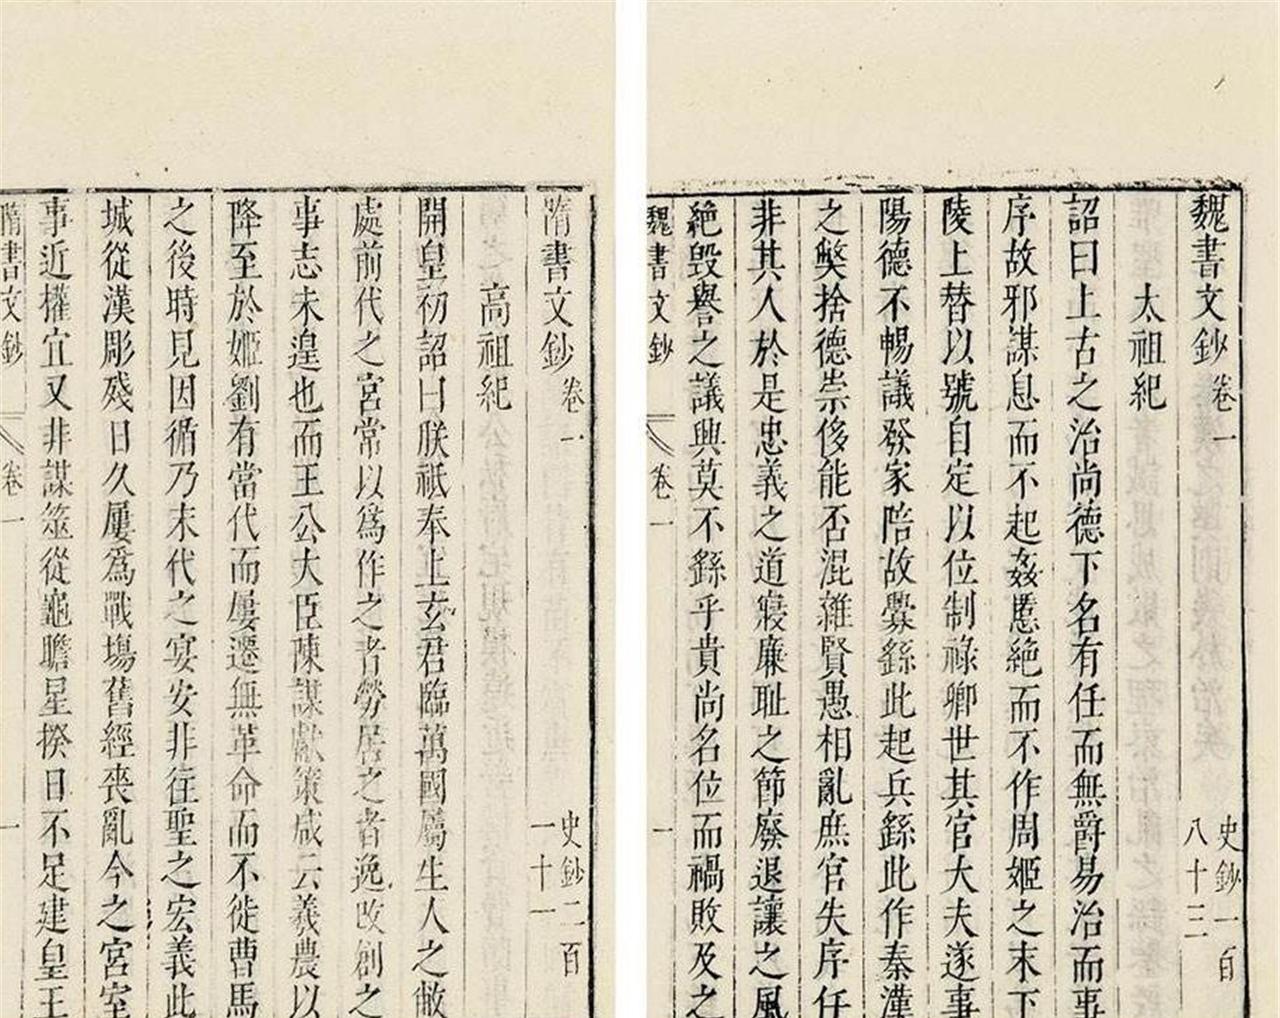 魏書文鈔卷一 史鈔一百八十三
太祖紀
詔曰上古之治尚德下名有任而無爵易治而事
序故邪謀息而不起姦慝絕而不作周姬之末下
陵上替以號自定以位制祿卿世其官大夫遂事
陽德不暢議發家陪故釁繇此起兵繇此作秦漢
之弊捨德崇侈能否混雜賢愚相亂庶官失序任
非其人於是忠義之道寢廉耻之節廢退讓之風
絕毀譽之議興莫不繇乎貴尚名位而禍敗及之
魏書文鈔 卷一 一
隋書文鈔卷一 史鈔二百一十一
高祖紀
開皇初詔曰朕祇奉上玄君臨萬國屬生人之敝
處前代之宮常以爲作之者勞居之者逸改創之
事志未遑也而王公大臣陳謀獻策咸云羲農以
降至於姬劉有當代而屢遷無革命而不徙曹馬
之後時見因循乃末代之宴安非往聖之宏義此
城從漢彫殘日久屢爲戰塲舊經喪亂今之宮室
事近權宜又非謀筮從龜瞻星揆日不足建皇王
隋書文鈔 卷一 一